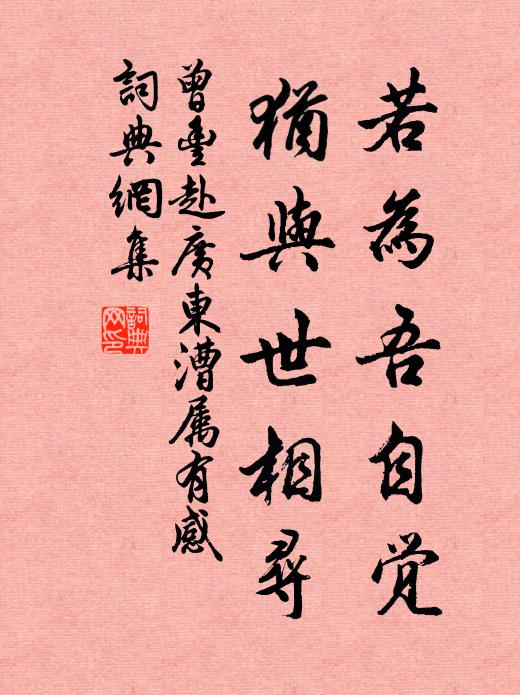 若為吾自觉
猶與世相尋
曾豐赴廣東漕属有感
詞典網集
詞典网印